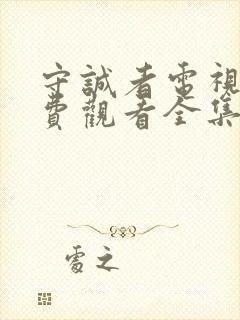 守誠者電視
費觀看全集
處之